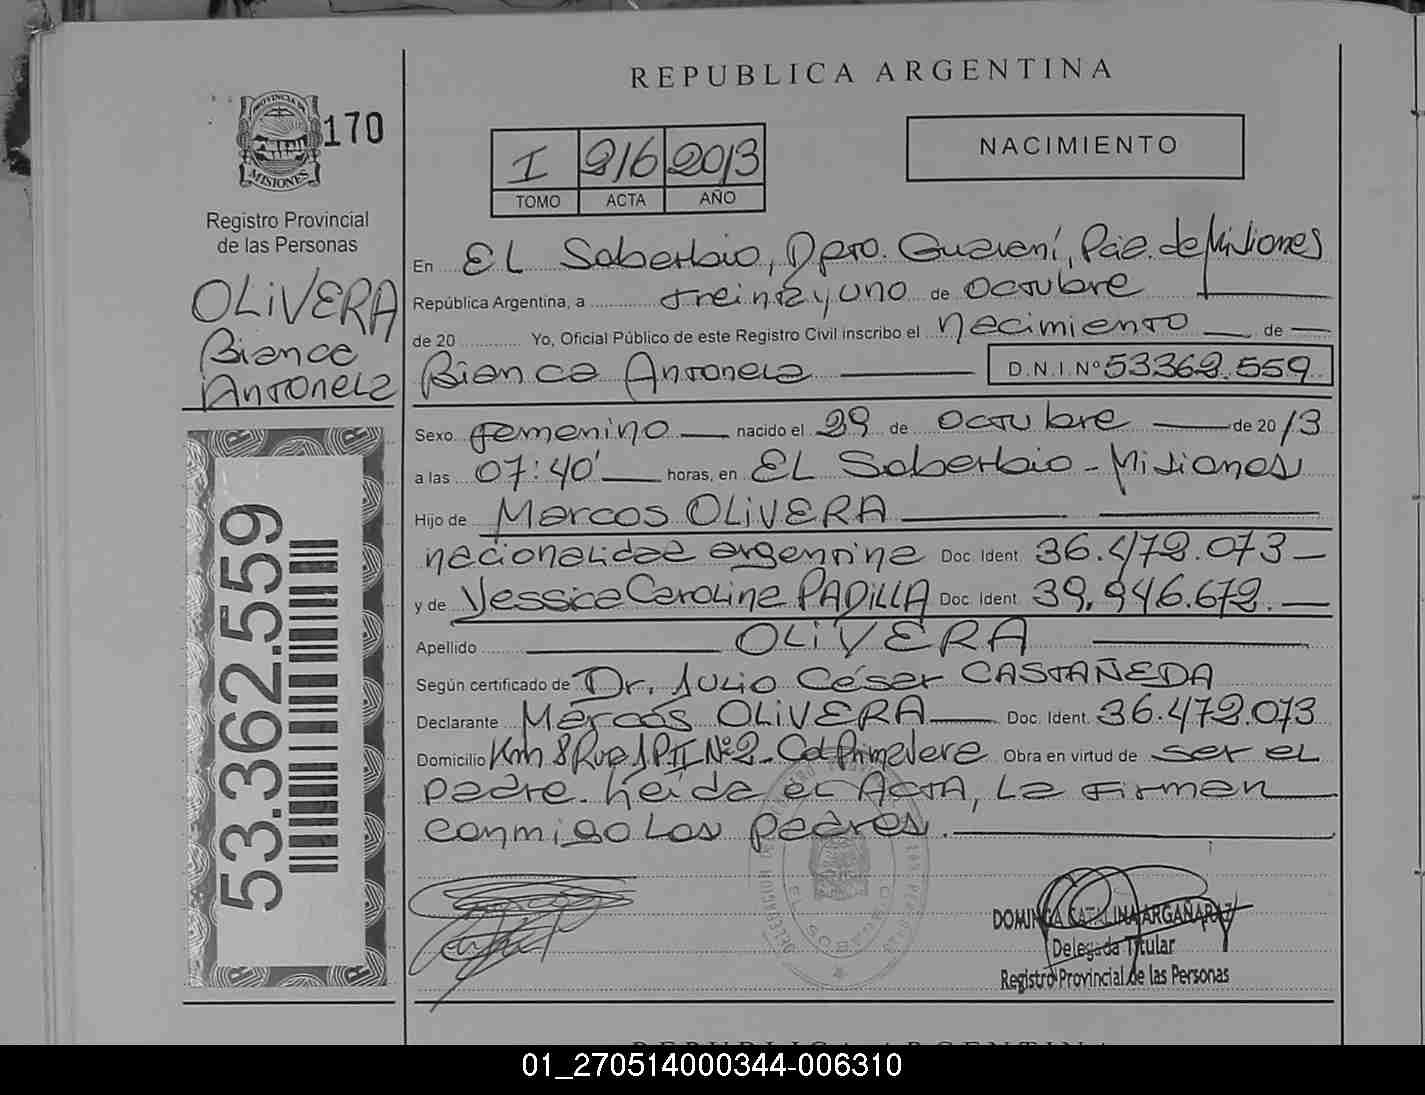 REPUBLICA ARGENTINA
PROVINCIA DE
MISIONES
170
I 216 2013
TOMO ACTA AÑO
NACIMIENTO
Registro Provincial
de las Personas
OLIVERA
Bianca
Antonela
53.362.559
En EL Soberbio, Dpto. Guaraní, Pcia. de Misiones
República Argentina, a treinta y uno de Octubre
de 20 Yo, Oficial Público de este Registro Civil inscribo el nacimiento de
Bianca Antonela D.N.I.Nº 53362.559
Sexo femenino nacido el 29 de octubre de 2013
a las 07:40' horas, en EL Soberbio - Misiones
Hijo de Marcos OLIVERA
nacionalidad argentina Doc. Ident. 36.472.073
y de Yessica Carolina PADILLA Doc. Ident. 39.946.672.
Apellido OLIVERA
Según certificado de Dr. Julio César CASTAÑEDA
Declarante Marcos OLIVERA Doc. Ident. 36.472.073
Domicilio Km 8 Ruta 1 P. II Nº2 - Col Primavera Obra en virtud de ser el
padre. Leída el Acta, La Firman
conmigo Los padres.
DOMINGA CATALINA ARGAÑARAZ
Delegada Titular
Registro Provincial de las Personas
REPUBLICA ARGENTINA
01_270514000344-006310